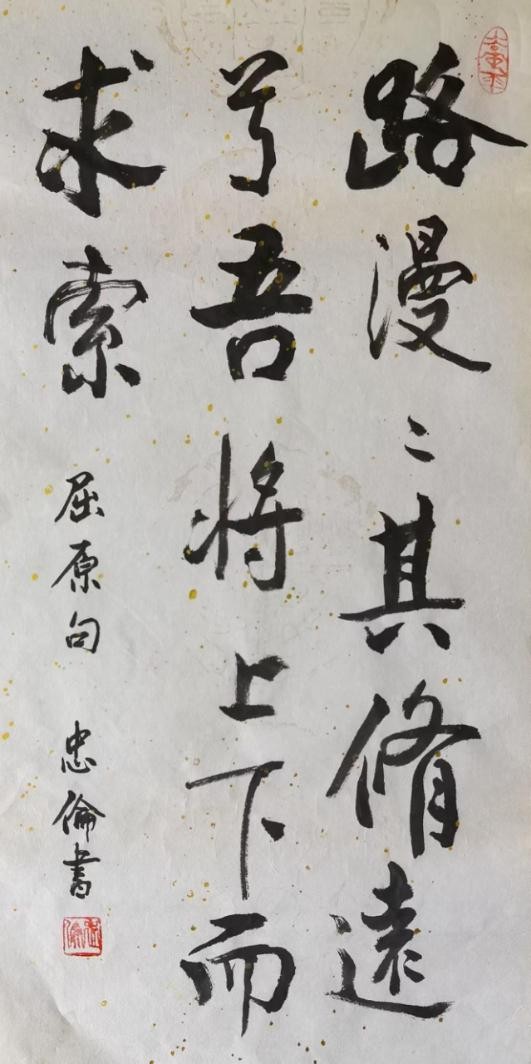 路漫〻其脩遠
兮吾將上下而
求索
屈原句 忠倫書